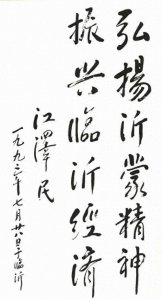 弘揚沂蒙精神
振兴臨沂經濟
江澤民
一九九二年七月廿八日于临沂